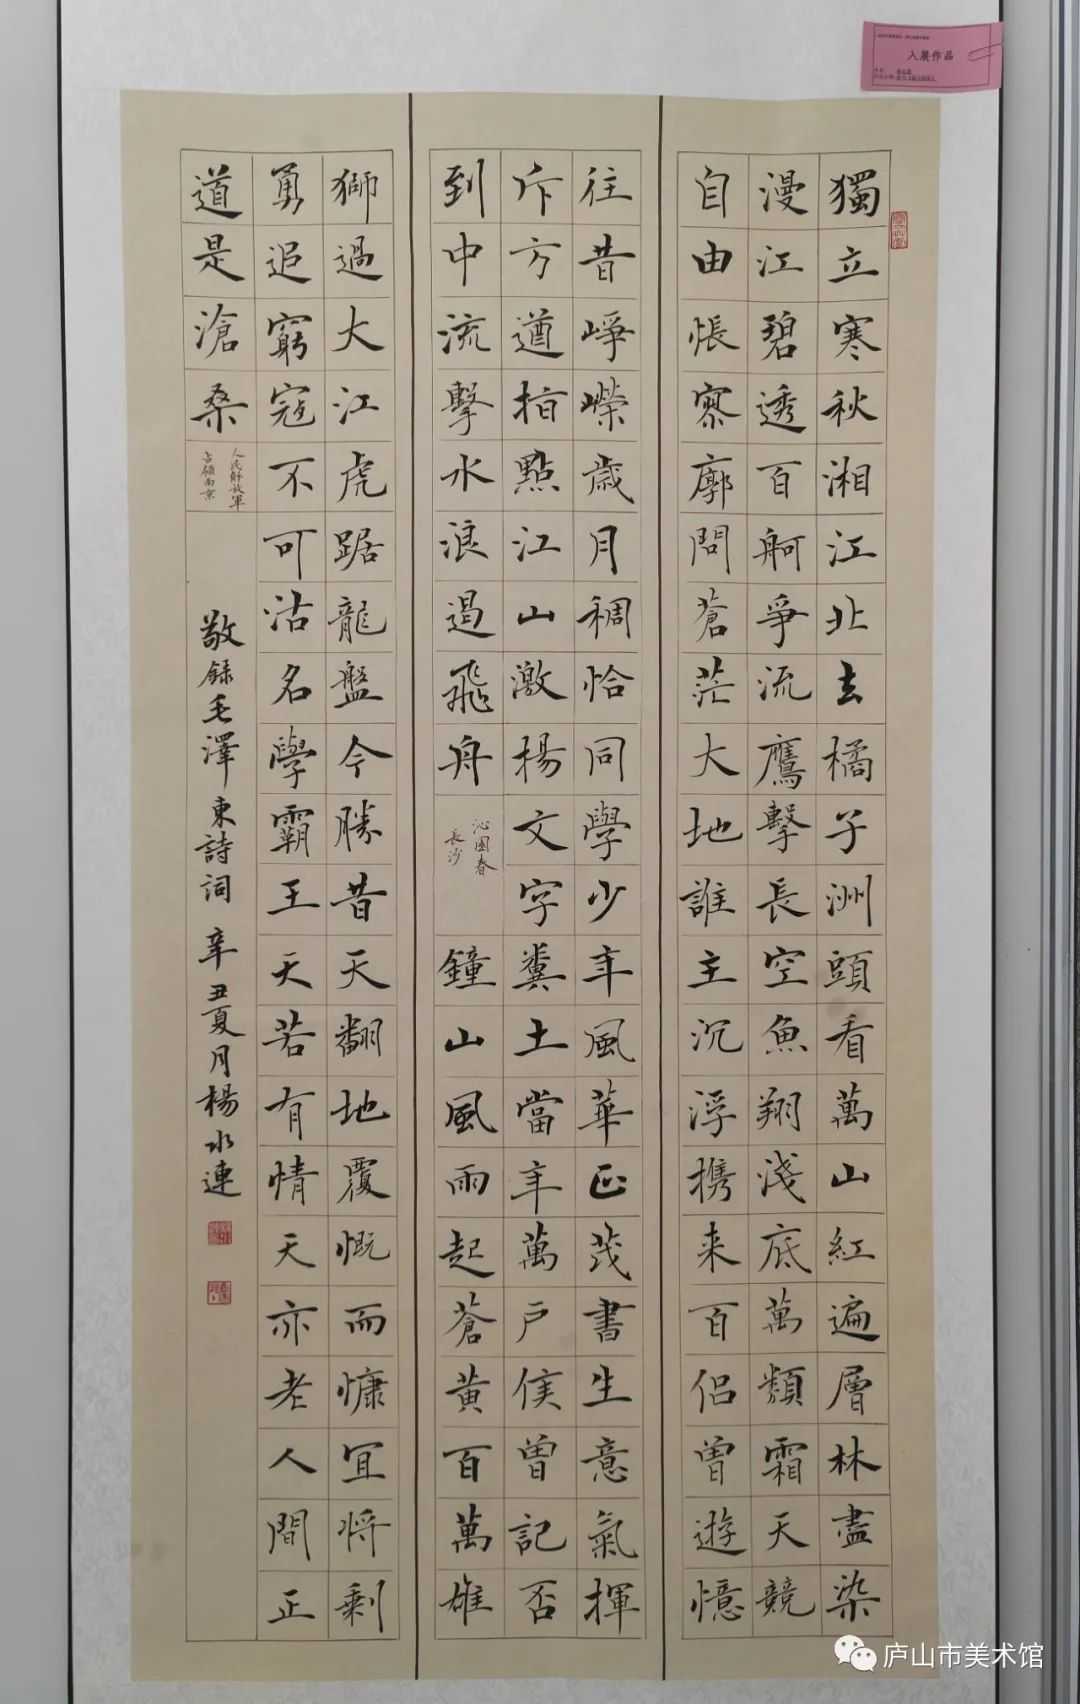 入展作品
獨立寒秋湘江北去橘子洲頭看萬山紅遍層林盡染
漫江碧透百舸爭流鷹擊長空魚翔淺底萬類霜天競
自由悵寥廓問蒼茫大地誰主沉浮携来百侣曾遊憶
往昔崢嶸歲月稠恰同學少年風華正茂書生意氣揮
斥方遒指點江山激楊文字糞土當年萬戶侯曾記否
到中流擊水浪遏飛舟
沁園春
長沙
鐘山風雨起蒼黃百萬雄
獅過大江虎踞龍盤今勝昔天翻地覆慨而慷宜将剩
勇追窮寇不可沽名學霸王天若有情天亦老人間正
道是滄桑
人民解放軍
占領南京
敬録毛澤東詩詞 辛丑夏月楊水連
庐山市美术馆